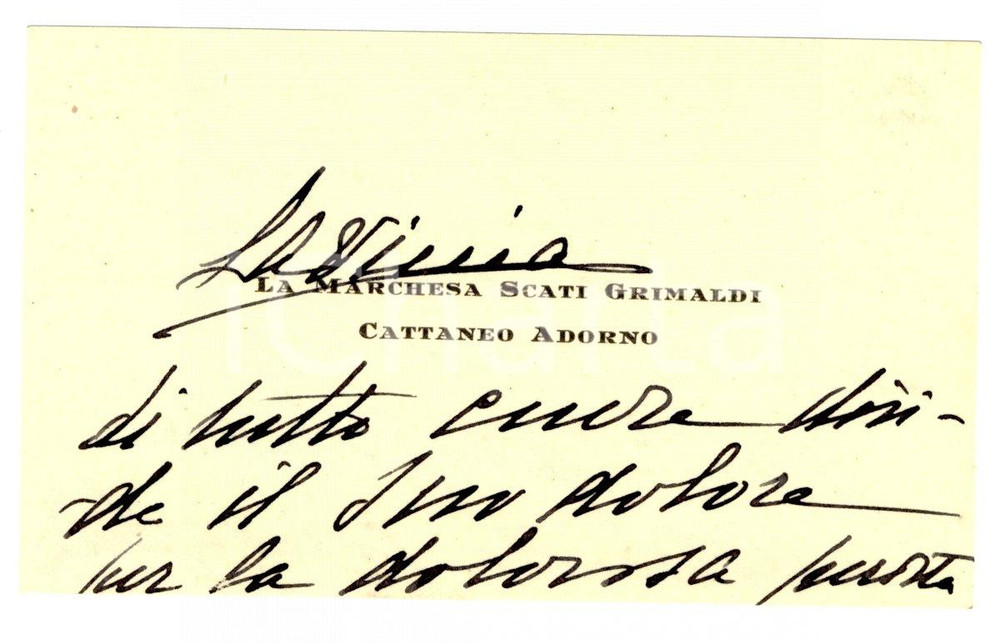 Lavinia
LA MARCHESA SCATI GRIMALDI
CATTANEO ADORNO
di tutto cuore divi-
de il Suo dolore
per la dolorosa perdita